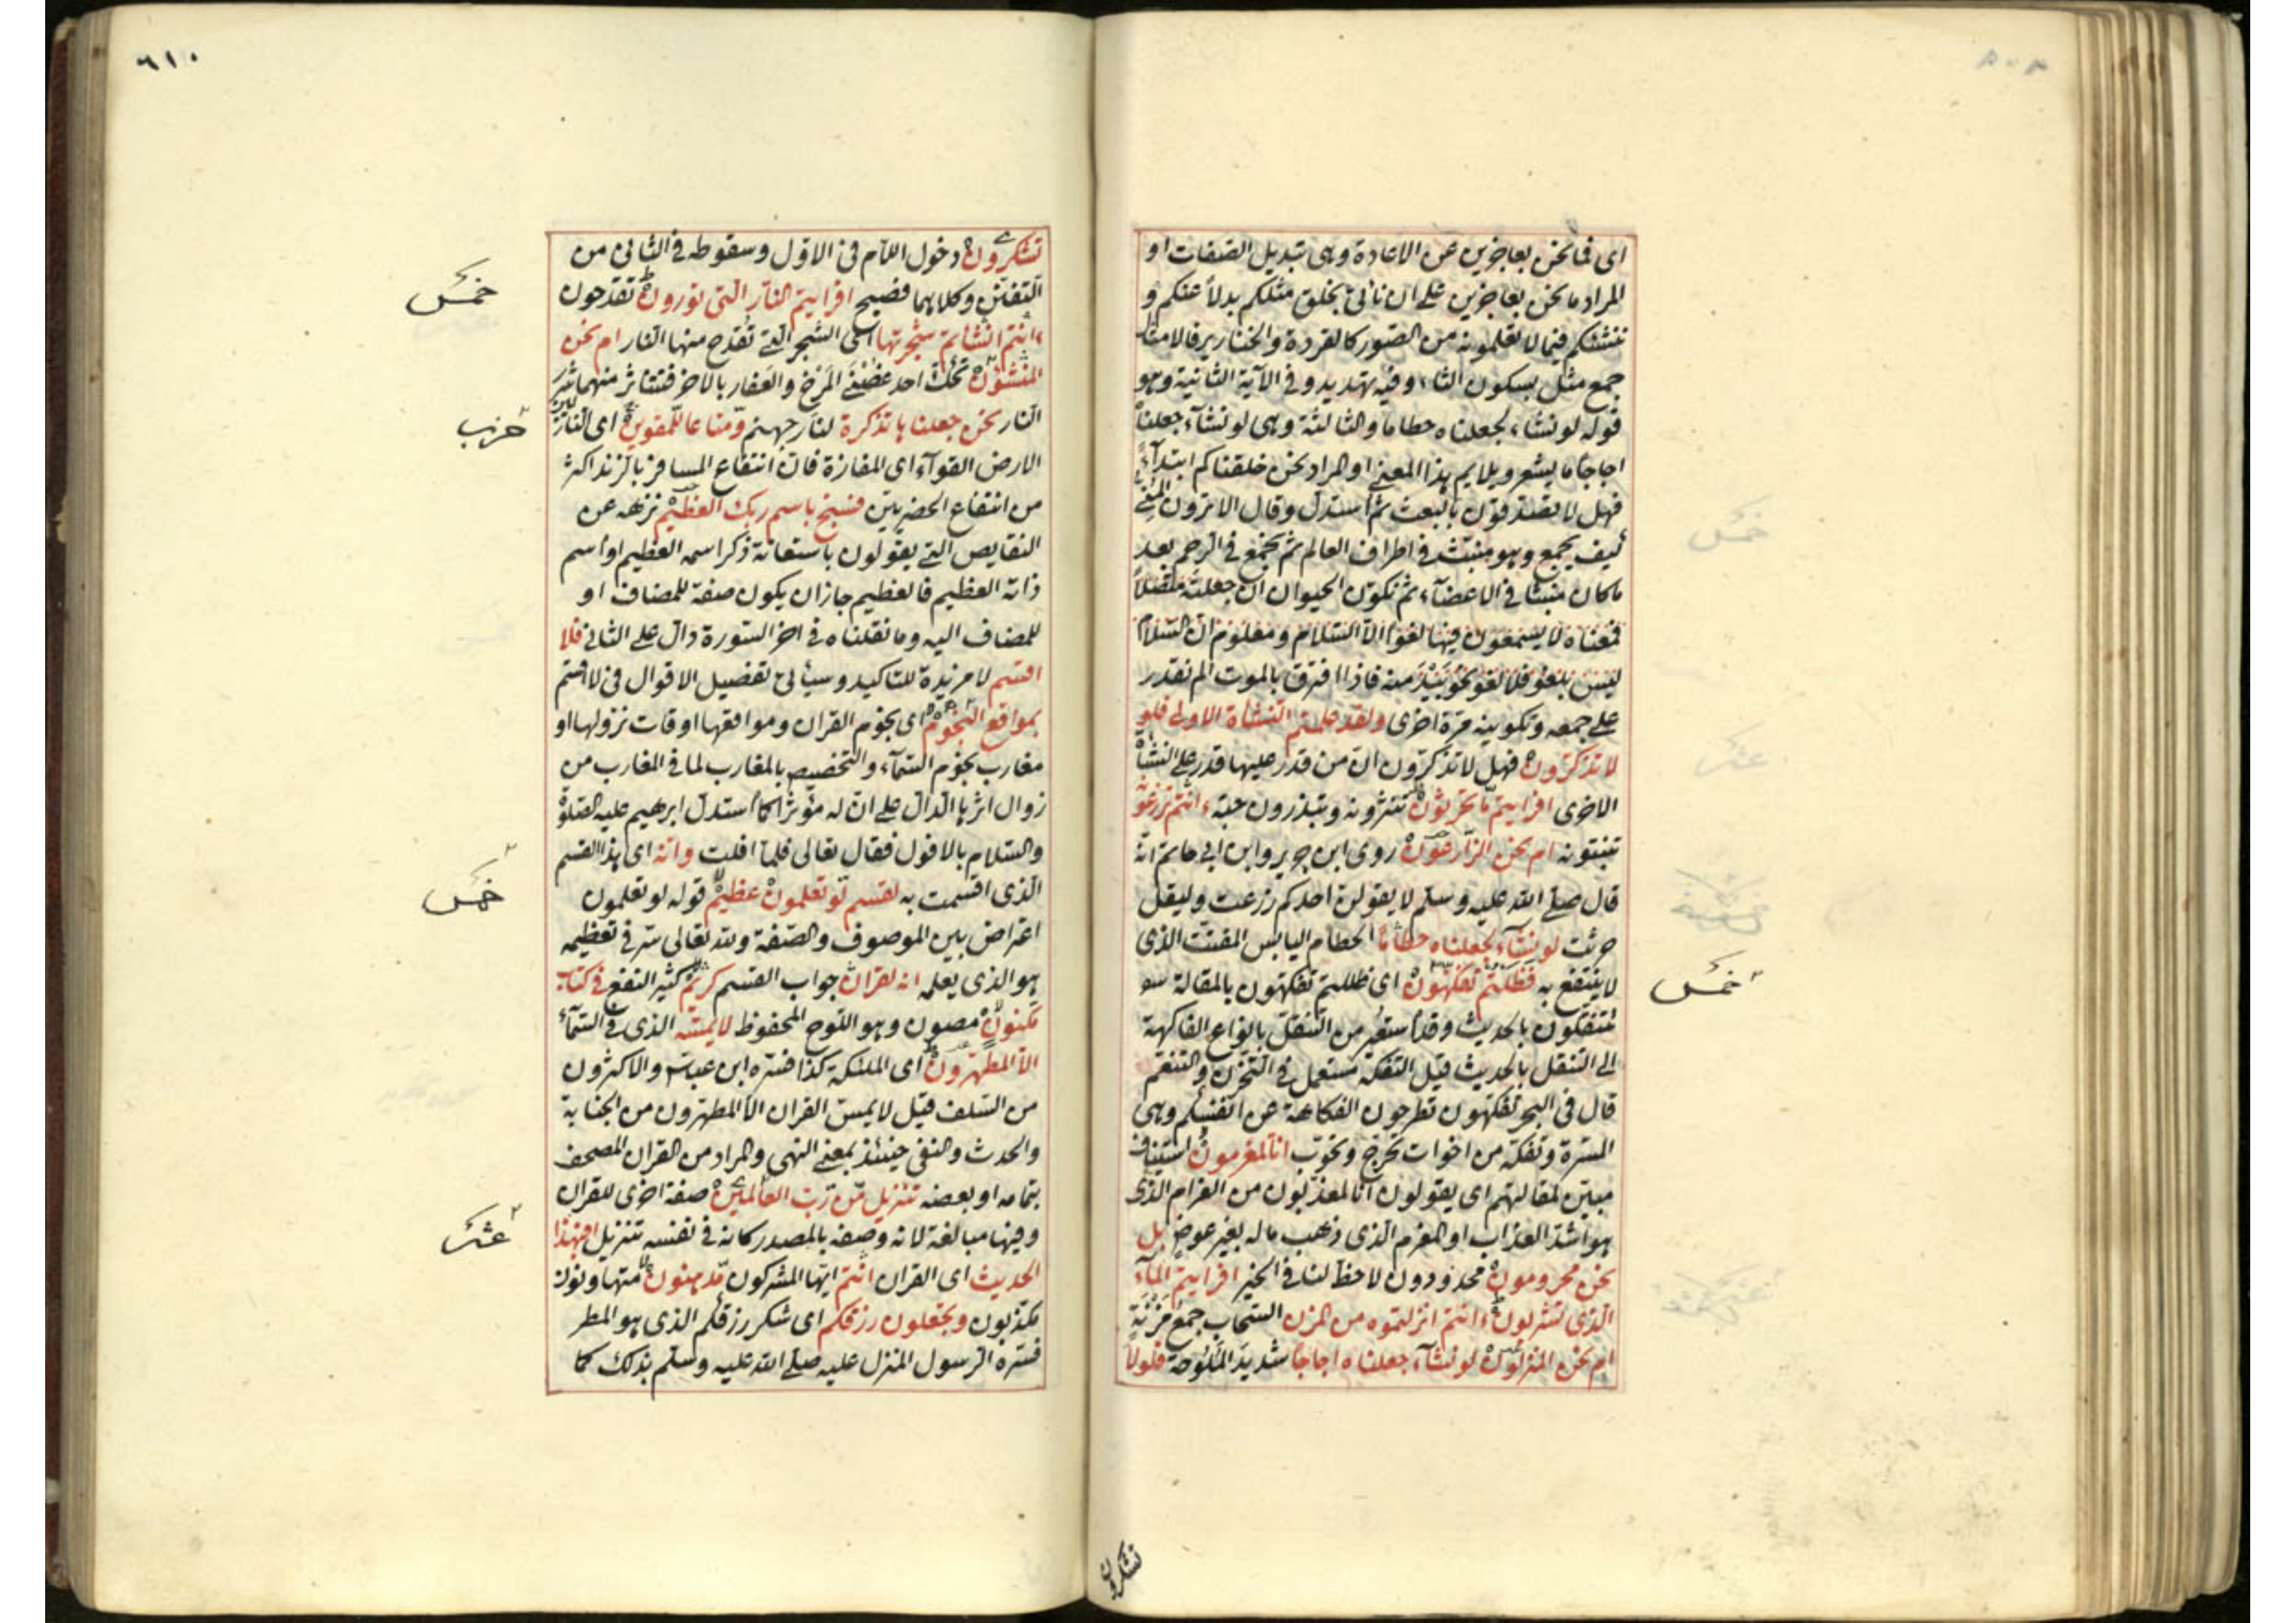 اى فما نحن بعاجزين عن الاعادة وهى تبديل الصفات او
المراد ما نحن بعاجزين على ان ناتى بخلق مثلكم بدلا عنكم و
ننشئكم فيما لا تعلمونه من الصور كالقردة والخنازير فالامثال
جمع مثل بسكون الثاء وفيه تهديد وفى الآية الثانية وهو
قوله لو نشاء لجعلناه حطاما والثالثة وهى لو نشآء جعلناه
اجاجا ما يشعر ويلايم هذا المعنى او المراد نحن خلقناكم ابتدآء
فهل لا تصدقون بالبعث ثم استدل وقال الا ترون المنى
كيف يجمع وهو منبث فى اطراف العالم ثم يجمع فى الرحم بعد
ما كان منبثا فى الاعضآء ثم تكون الحيوان ان جعلته متصلا
فمعناه لا يسمعون فيها لغوا الا السلام ومعلوم ان السلام
ليس بلغو فلا لغو نحو منه فاذا افترق بالموت الم نقدر
على جمعه وتكوينه مرة اخرى ولقد علمتم النشاة الاولى فلو
لا تذكرون فهل لا تذكرون ان من قدر عليها قدر على النشأة
الاخرى افرايتم ما تحرثون تثرونه وتبذرون حبه ءانتم تزرعونه
تنبتونه ام نحن الزارعون روى ابن جرير وابن ابى حاتم انه
قال صلى الله عليه وسلم لا يقولن احدكم زرعت وليقل
حرثت لو نشآء لجعلناه حطاما الحطام اليابس المفتت الذى
لا ينتفع به فظلتم تفكهون اى ظللتم تفكهون بالمقالة سو
تتنقلون بالحديث وقد استعير من التنقل بانواع الفاكهة
الى التنقل بالحديث قيل التفكه مستعمل فى التحزن والتنعم
قال فى البحر تفكهون تطرحون الفكاهة عن انفسكم وهى
المسرة وتفكه من اخوات تحرج وتحوب انا لمغرمون استيناف
مبين لمقالتهم اى يقولون انا لمعذبون من الغرام الذى
هو اشد العذاب او المغرم الذى ذهب ماله بغير عوض بل
نحن محرومون محدودون لا حظ لنا فى الخير افرايتم المآء
الذى تشربون ءانتم انزلتموه من المزن السحاب جمع مزنة
ام نحن المنزلون لو نشآء جعلناه اجاجا شديد الملوحة فلولا
خمس
تشكرون
٦١٠
تشكرون دخول اللام فى الاول وسقوطه فى الثانى من
التفنن وكلاهما فصيح افرايتم النار التى تورون تقدحون
ءانتم انشاتم شجرتها اى الشجر التى تقدح منها النار ام نحن
المنشؤن تحك احد غصنى المرخ والعفار بالاخر فتتناثر منهما شرر
النار نحن جعلناها تذكرة لنار جهنم ومتاعا للمقوين اى النازلين
الارض القوآء اى المفازة فان انتفاع المسافر بالزند اكثر
من انتفاع الحضريين فسبح باسم ربك العظيم نزهه عن
النقايص التى يقولون باستعانة ذكر اسمه العظيم او اسم
ذاته العظيم فالعظيم جاز ان يكون صفة للمضاف او
للمضاف اليه وما نقلناه فى اخر السورة دال على الثانى فلا
اقسم لا مزيدة للتاكيد وسيأتى تفصيل الاقوال فى لا اقسم
بمواقع النجوم اى نجوم القران ومواقعها اوقات نزولها او
مغارب نجوم السمآء والتخصيص بالمغارب لما فى المغارب من
زوال اثرها الدال على ان له مؤثرا كما استدل ابرهيم عليه الصلوة
والسلام بالافول فقال تعالى فلما افلت وانه اى هذا القسم
الذى اقسمت به لقسم لو تعلمون عظيم قوله لو تعلمون
اعتراض بين الموصوف والصفة ولله تعالى سر فى تعظيمه
هو الذى يعلمه انه لقران جواب القسم كريم كثير النفع فى كتاب
مكنون مصون وهو اللوح المحفوظ لا يمسه الذى فى السمآء
الا المطهرون اى الملئكة كذا فسره ابن عباس والاكثرون
من السلف قيل لا يمس القران الا المطهرون من الجنابة
والحدث والنفى حينئذ بمعنى النهى والمراد من القران المصحف
بتمامه او بعضه تنزيل من رب العالمين صفة اخرى للقران
وفيها مبالغة لانه وصفه بالمصدر كانه فى نفسه تنزيل افبهذا
الحديث اى القران انتم ايها المشركون مدهنون متهاونون
مكذبون وتجعلون رزقكم اى شكر رزقكم الذى هو المطر
فسره الرسول المنزل عليه صلى الله عليه وسلم بذلك كما
خمس
حزب
خمس
عشر